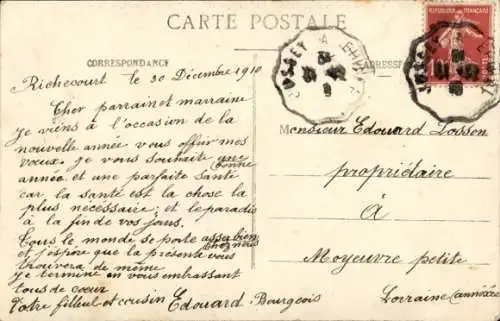 CARTE POSTALE
CORRESPONDANCE
ADRESSE
RÉPUBLIQUE FRANÇAISE
JUSSEY A
Richecourt le 30 Décembre 1910
Cher parrain et marraine
Je viens à l'occasion de la
nouvelle année vous offrir mes
vœux. je vous souhaite une bonne
année et une parfaite santé
car la santé est la chose la
plus nécessaire; et le paradis
à la fin de vos jours.
Tous le monde se porte asser bien chez nous
et j'espère que la présente vous
trouvera de même
Je termine en vous embrassant
tous de cœur
Votre filleul et cousin Edouard Bourgeois
Monsieur Edouard Dosson
propriétaire
à
Moyeuvre petite
Lorraine (annéxée